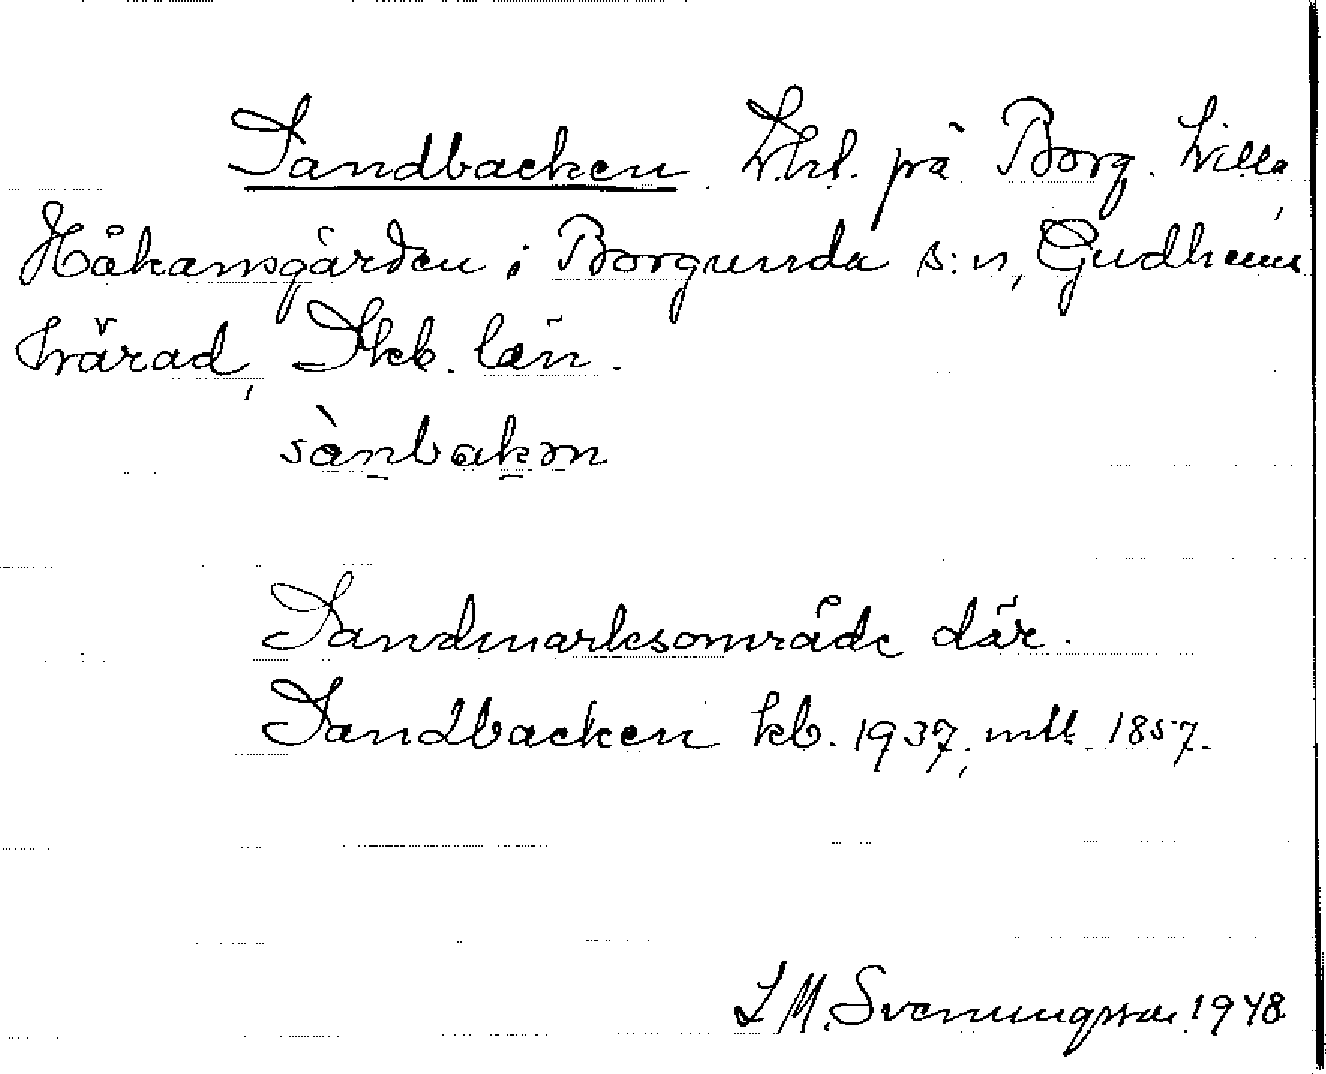 Sandbacken Lhl. på Borg. Lilla,
Håkansgården i Borgunda s:n, Gudhems
härad, Skb. län.
sànbakən
Sandmarksområde där.
Sandbacken kb. 1937, mtl 1857.
L M. Svenungsson 1948